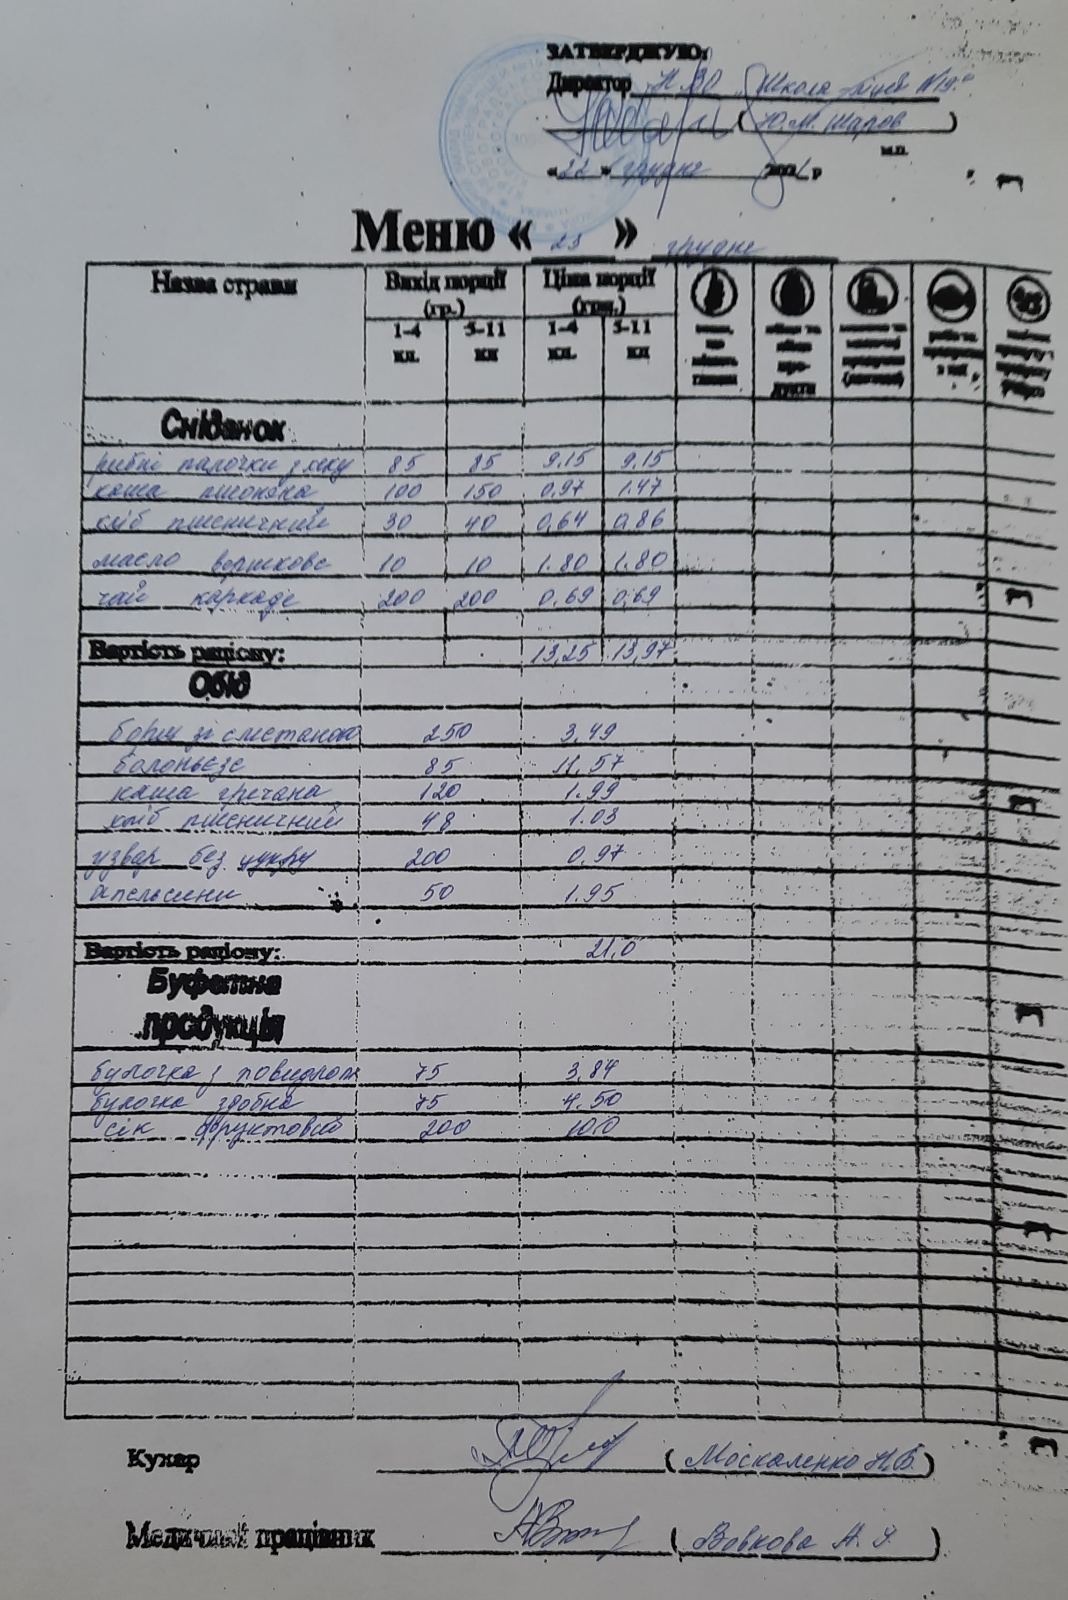 ЗАТВЕРДЖУЮ:
Директор НЗО "Школа-ліцей №19"
( Ю.М. Шаров )
м.п.
« 22 » грудня р
Меню « 23 » грудня
Назва страви Вихід порції (гр.) Ціна порції (грн.)
1-4 кл. 5-11 кл 1-4 кл. 5-11 кл
Сніданок
рибні палочки з хеку 85 85 9,15 9,15
каша пшоняна 100 150 0,97 1.47
хліб пшеничний 30 40 0,64 0,86
масло вершкове 10 10 1.80 1.80
чай каркаде 200 200 0.69 0,69
Вартість раціону: 13,25 13,97
Обід
борщ зі сметаною 250 3.49
болоньєзе 85 11.57
каша гречана 120 1.99
хліб пшеничний 48 1.03
узвар без цукру 200 0,97
апельсини 50 1.95
Вартість раціону: 21.0
Буфетна
продукція
булочка з повидлом 75 3.84
булочка здобна 75 4.50
сік фруктовий 200 10.0
Кухар ( Москаленко Н.В. )
Медичний працівник ( Вовкова А. )